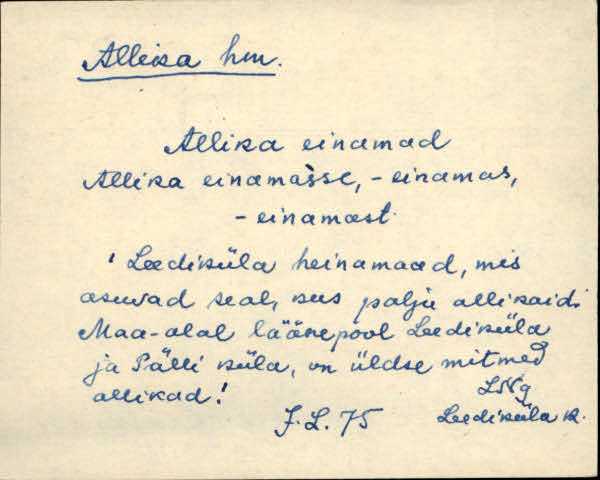 Allika hm.
Allika einamad
Allika einamàsse, - einamas,
- einamast.
' Leediküla heinamaad, mis
asuvad seal, kus palju allikaid.
Maa-alal läänepool Leediküla
ja Pälli küla, on üldse mitmed
allikad!
LNg
J. L. 75
Leediküla k.